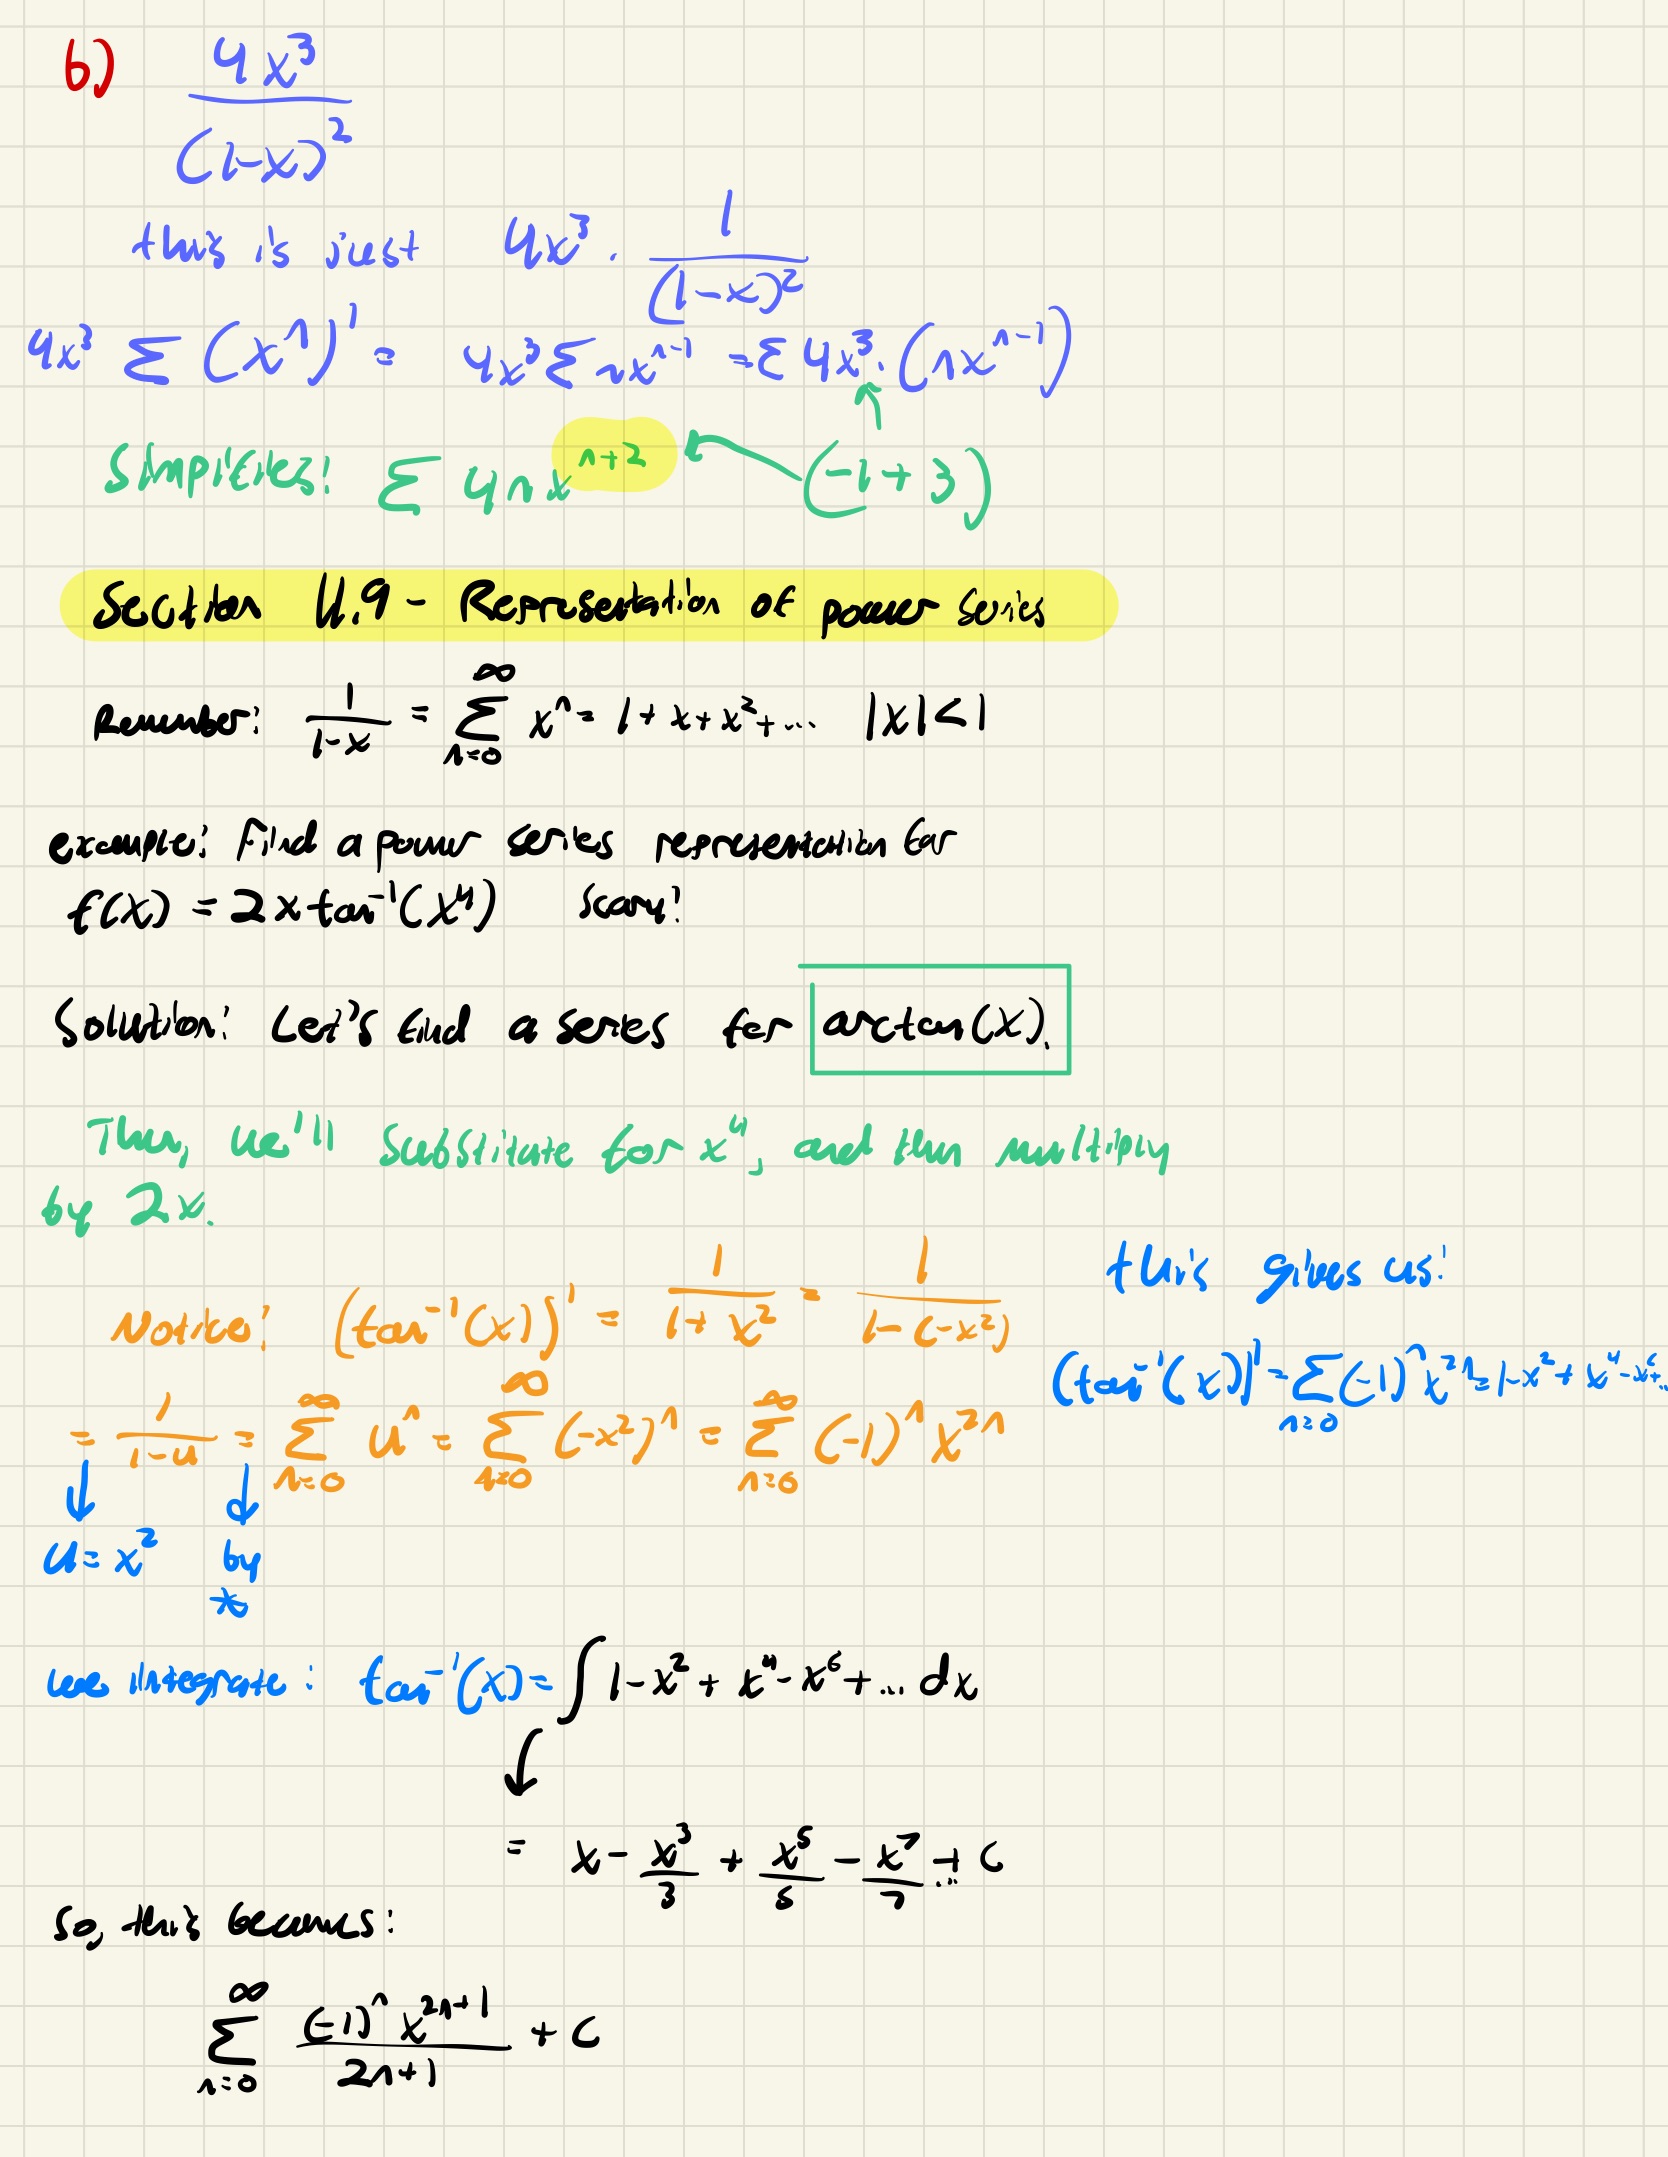 b) 4x³ / (1-x)²
this is just 4x³ · 1 / (1-x)²
4x³ Σ (xⁿ)' = 4x³ Σ nxⁿ⁻¹ = Σ 4x³ · (nxⁿ⁻¹)
Simplifies! Σ 4nxⁿ⁺² (-1+3)
Section 11.9 - Representation of power series
Remember: 1/(1-x) = Σ_{n=0}^∞ xⁿ = 1 + x + x² + ... |x| < 1
example: Find a power series representation for
f(x) = 2x tan⁻¹(x⁴) scary!
Solution: Let's find a series for arctan(x).
Then, we'll substitute for x⁴, and then multiply
by 2x.
Notice: (tan⁻¹(x))' = 1/(1+x²) = 1/(1-(-x²))
= 1/(1-u) = Σ_{n=0}^∞ uⁿ = Σ_{n=0}^∞ (-x²)ⁿ = Σ_{n=0}^∞ (-1)ⁿ x²ⁿ
u = x² by
*
this gives us:
(tan⁻¹(x))' = Σ_{n=0} (-1)ⁿ x²ⁿ = 1 - x² + x⁴ - x⁶ + ..
we integrate: tan⁻¹(x) = ∫ 1 - x² + x⁴ - x⁶ + ... dx
= x - x³/3 + x⁵/5 - x⁷/7 + ... C
so, this becomes:
Σ_{n=0}^∞ (-1)ⁿ x²ⁿ⁺¹ / 2n+1 + C